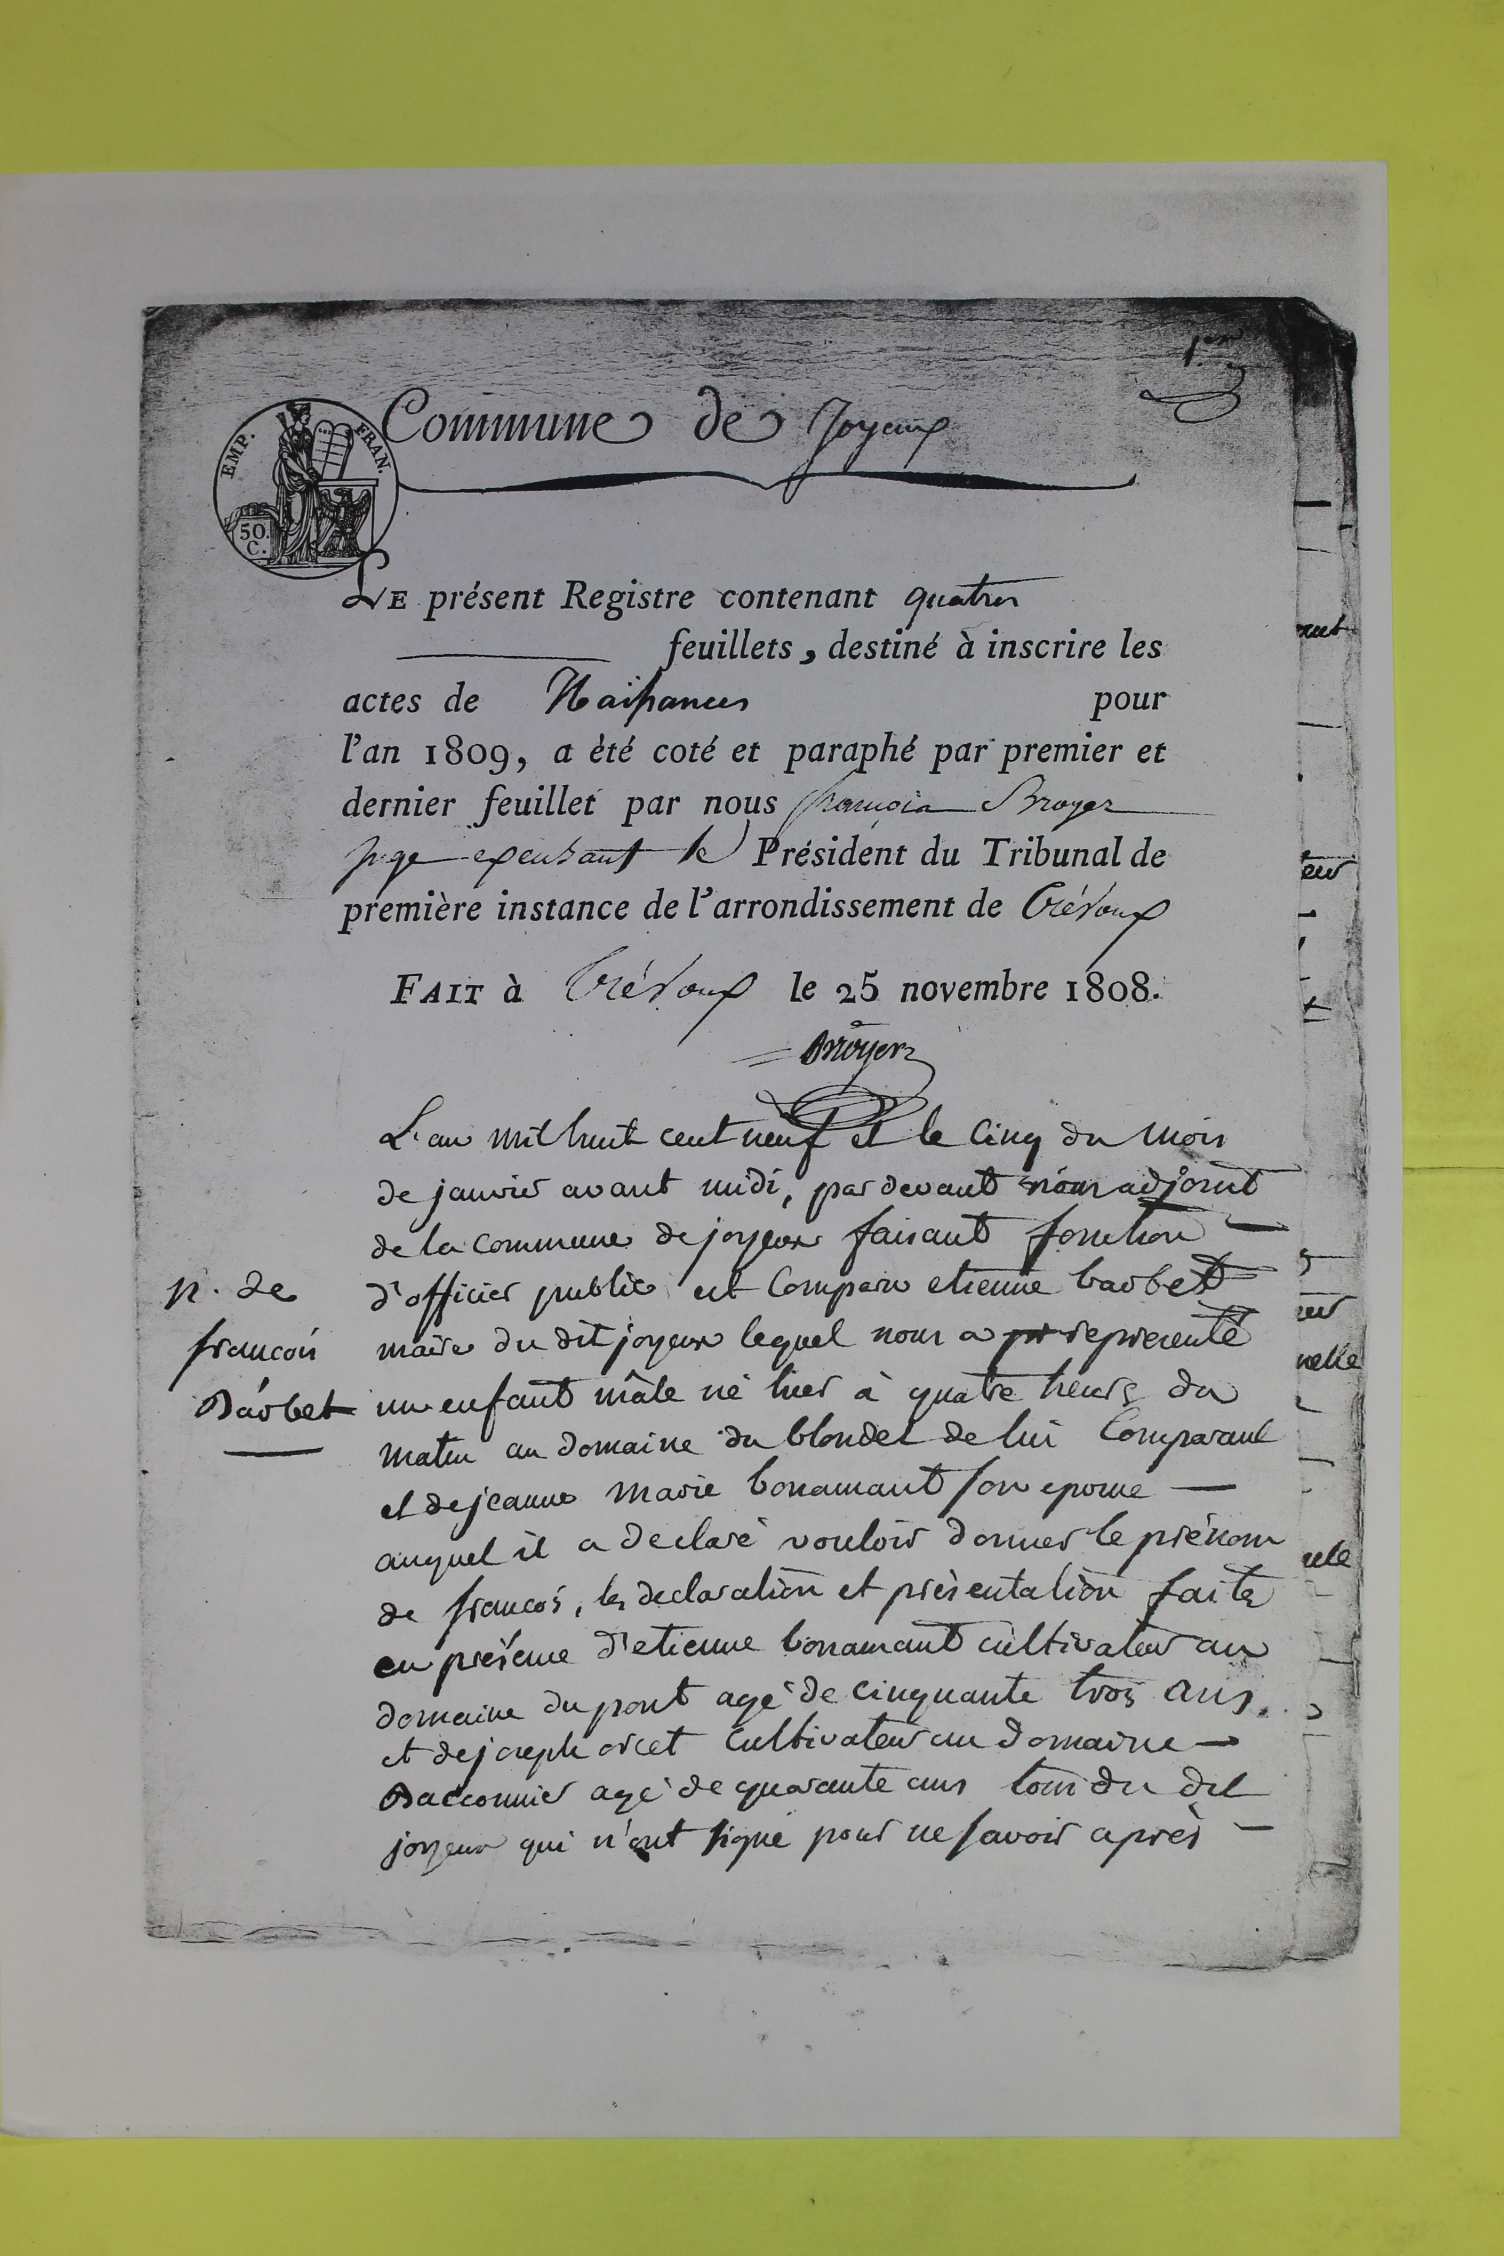 1er
EMP. FRAN.
50. C.
Commune de Joyeux
LE présent Registre contenant quatre
feuillets, destiné à inscrire les
actes de Naissances pour
l'an 1809, a èté coté et paraphé par premier et
dernier feuillet par nous françois Broyer
juge exerçant le Président du Tribunal de
première instance de l'arrondissement de Trévoux
FAIT à Trévoux le 25 novembre 1808.
Broyer
L'an mil huit cent neuf et le cinq du mois
de janvier avant midi, par devant nous adjoint
de la commune de joyeux faisant fonction
d'officier public est comparu etienne barbet
maire du dit joyeux lequel nous a representé
un enfant mâle né hier à quatre heurs du
matin au domaine du blondel de lui comparant
et de jeanne marie bonamant son epouse
auquel il a declaré vouloir donner le prénom
de francois, les declaration et présentation faite
en présence d'etienne bonamant cultivateur au
domaine du pont agé de cinquante trois ans,
et de joseph orcet cultivateur au domaine
Bacconnier agé de quarante ans tous du dit
joyeux qui n'ont signé pour ne savoir après
n. de
francois
Barbet